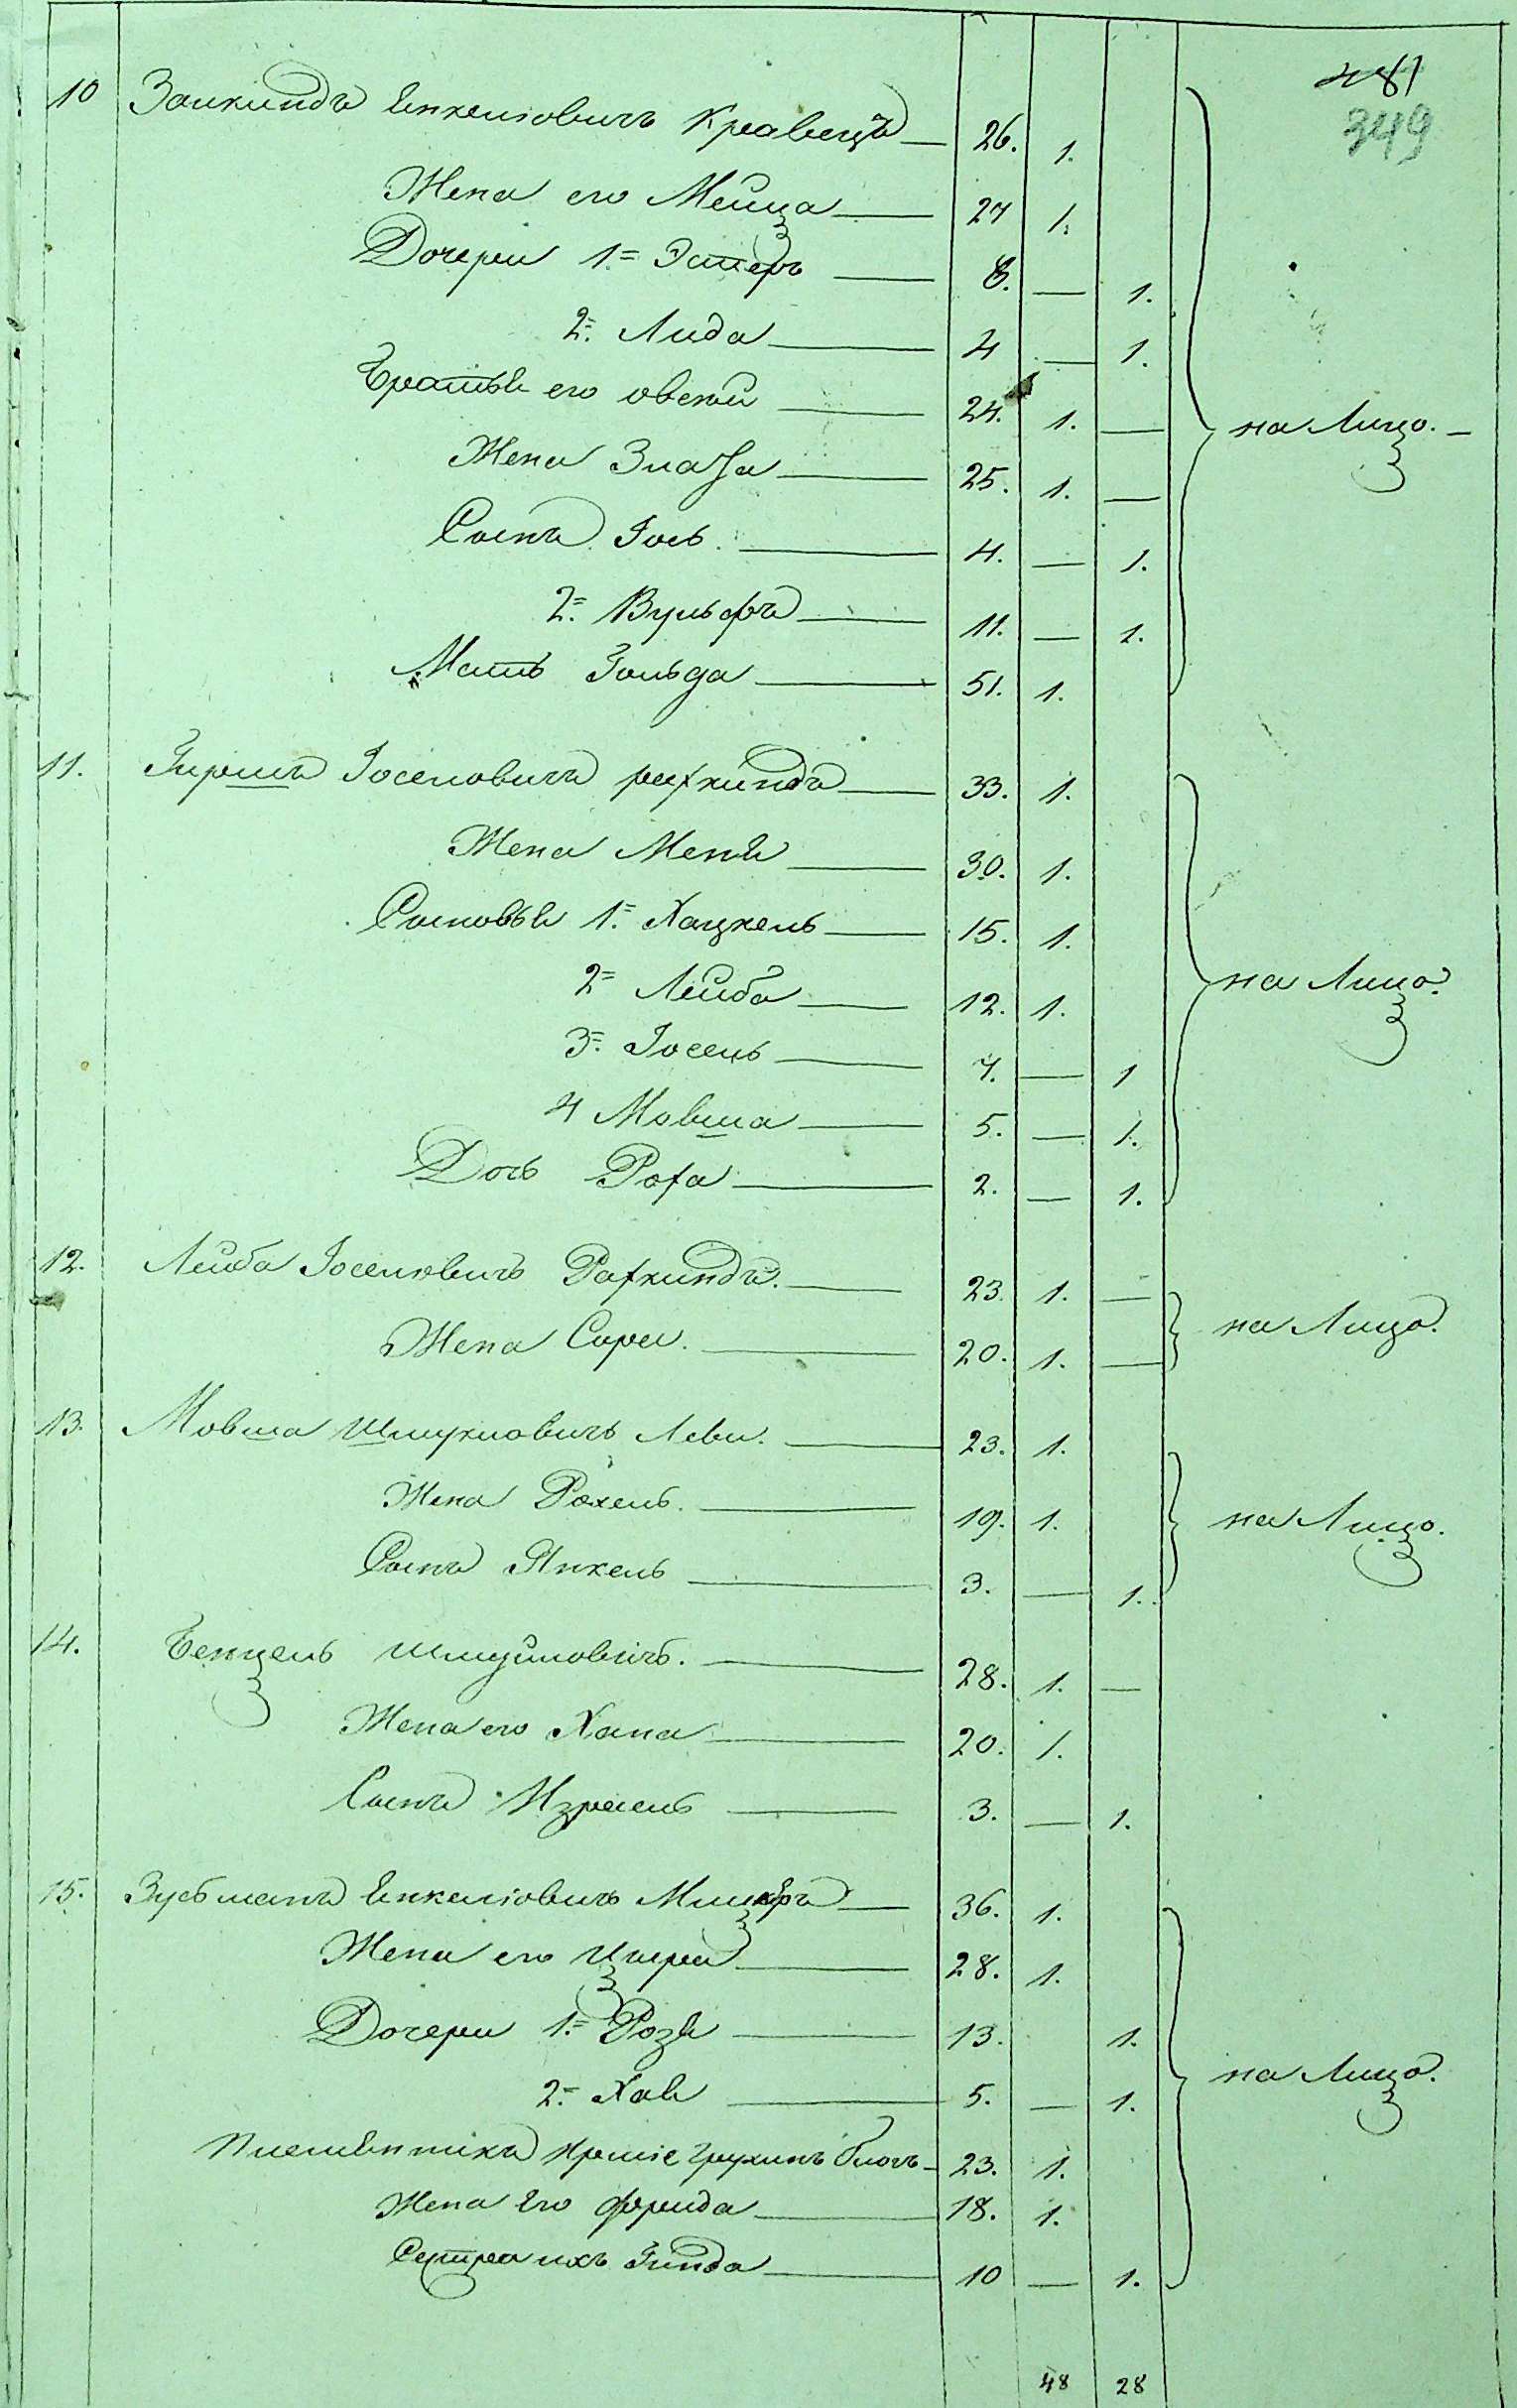 481
349
10 Залкиндъ Енкелiовичъ Кравецъ — 26. 1.
Жена его Мейца — 27 1.
Дочери 1.= Эстеръ — 8. — 1.
2.= Лида — 4 — 1.
Братья его — 24. 1. — на Лицо. —
Жена Злата — 25. 1. —
Сынъ — 4. — 1.
2.= Вульфъ — 11. — 1.
Мать Гольда — 51. 1.
11. Гиршъ Iоселовичъ рафкиндъ — 33. 1.
Жена Менѣ — 30. 1.
Сыновьѣ 1.= Хацкель — 15. 1.
2= Лейба — 12. 1. на Лицо.
3=. Iосель — 7. — 1
4 Мовша — 5. — 1.
Дочь Роза — 2. — 1.
12. Лейба Iоселювичъ Рафкиндъ. — 23. 1. —
Жена Сора. — 20. 1. — на Лицо.
13. Мовша Шмуклович Леви. — 23. 1.
Жена Рохель. — 19. 1. на Лицо.
Сынъ Янкель — 3. — 1.
14. Бенцель Шмуйловичъ. — 28. 1. —
Жена его Хана — 20. 1.
Сынъ Израель — 3. — 1.
15. Зусьманъ Енкелiовичъ — 36. 1.
Жена его Ципра — 28. 1.
Дочери 1.= Розѣ — 13. 1.
2.= Хаѣ — 5. — 1. на Лицо.
Племѣнникъ — 23. 1.
Жена Его Фрида — 18. 1.
Сестра ихъ Гинда — 10 — 1.
48 28